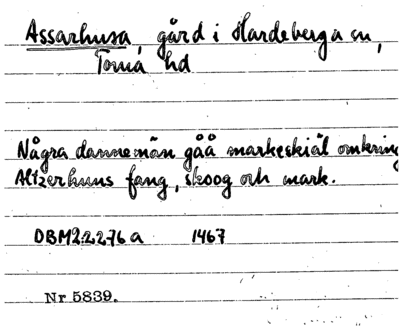 Assarhusa, gård i Hardeberga sn,
Torna hd
Några dannemän gåå markeskiäl omkring
Altzerhuns fang, skoog och mark.
DBM2:2:276 a 1467
Nr 5839.